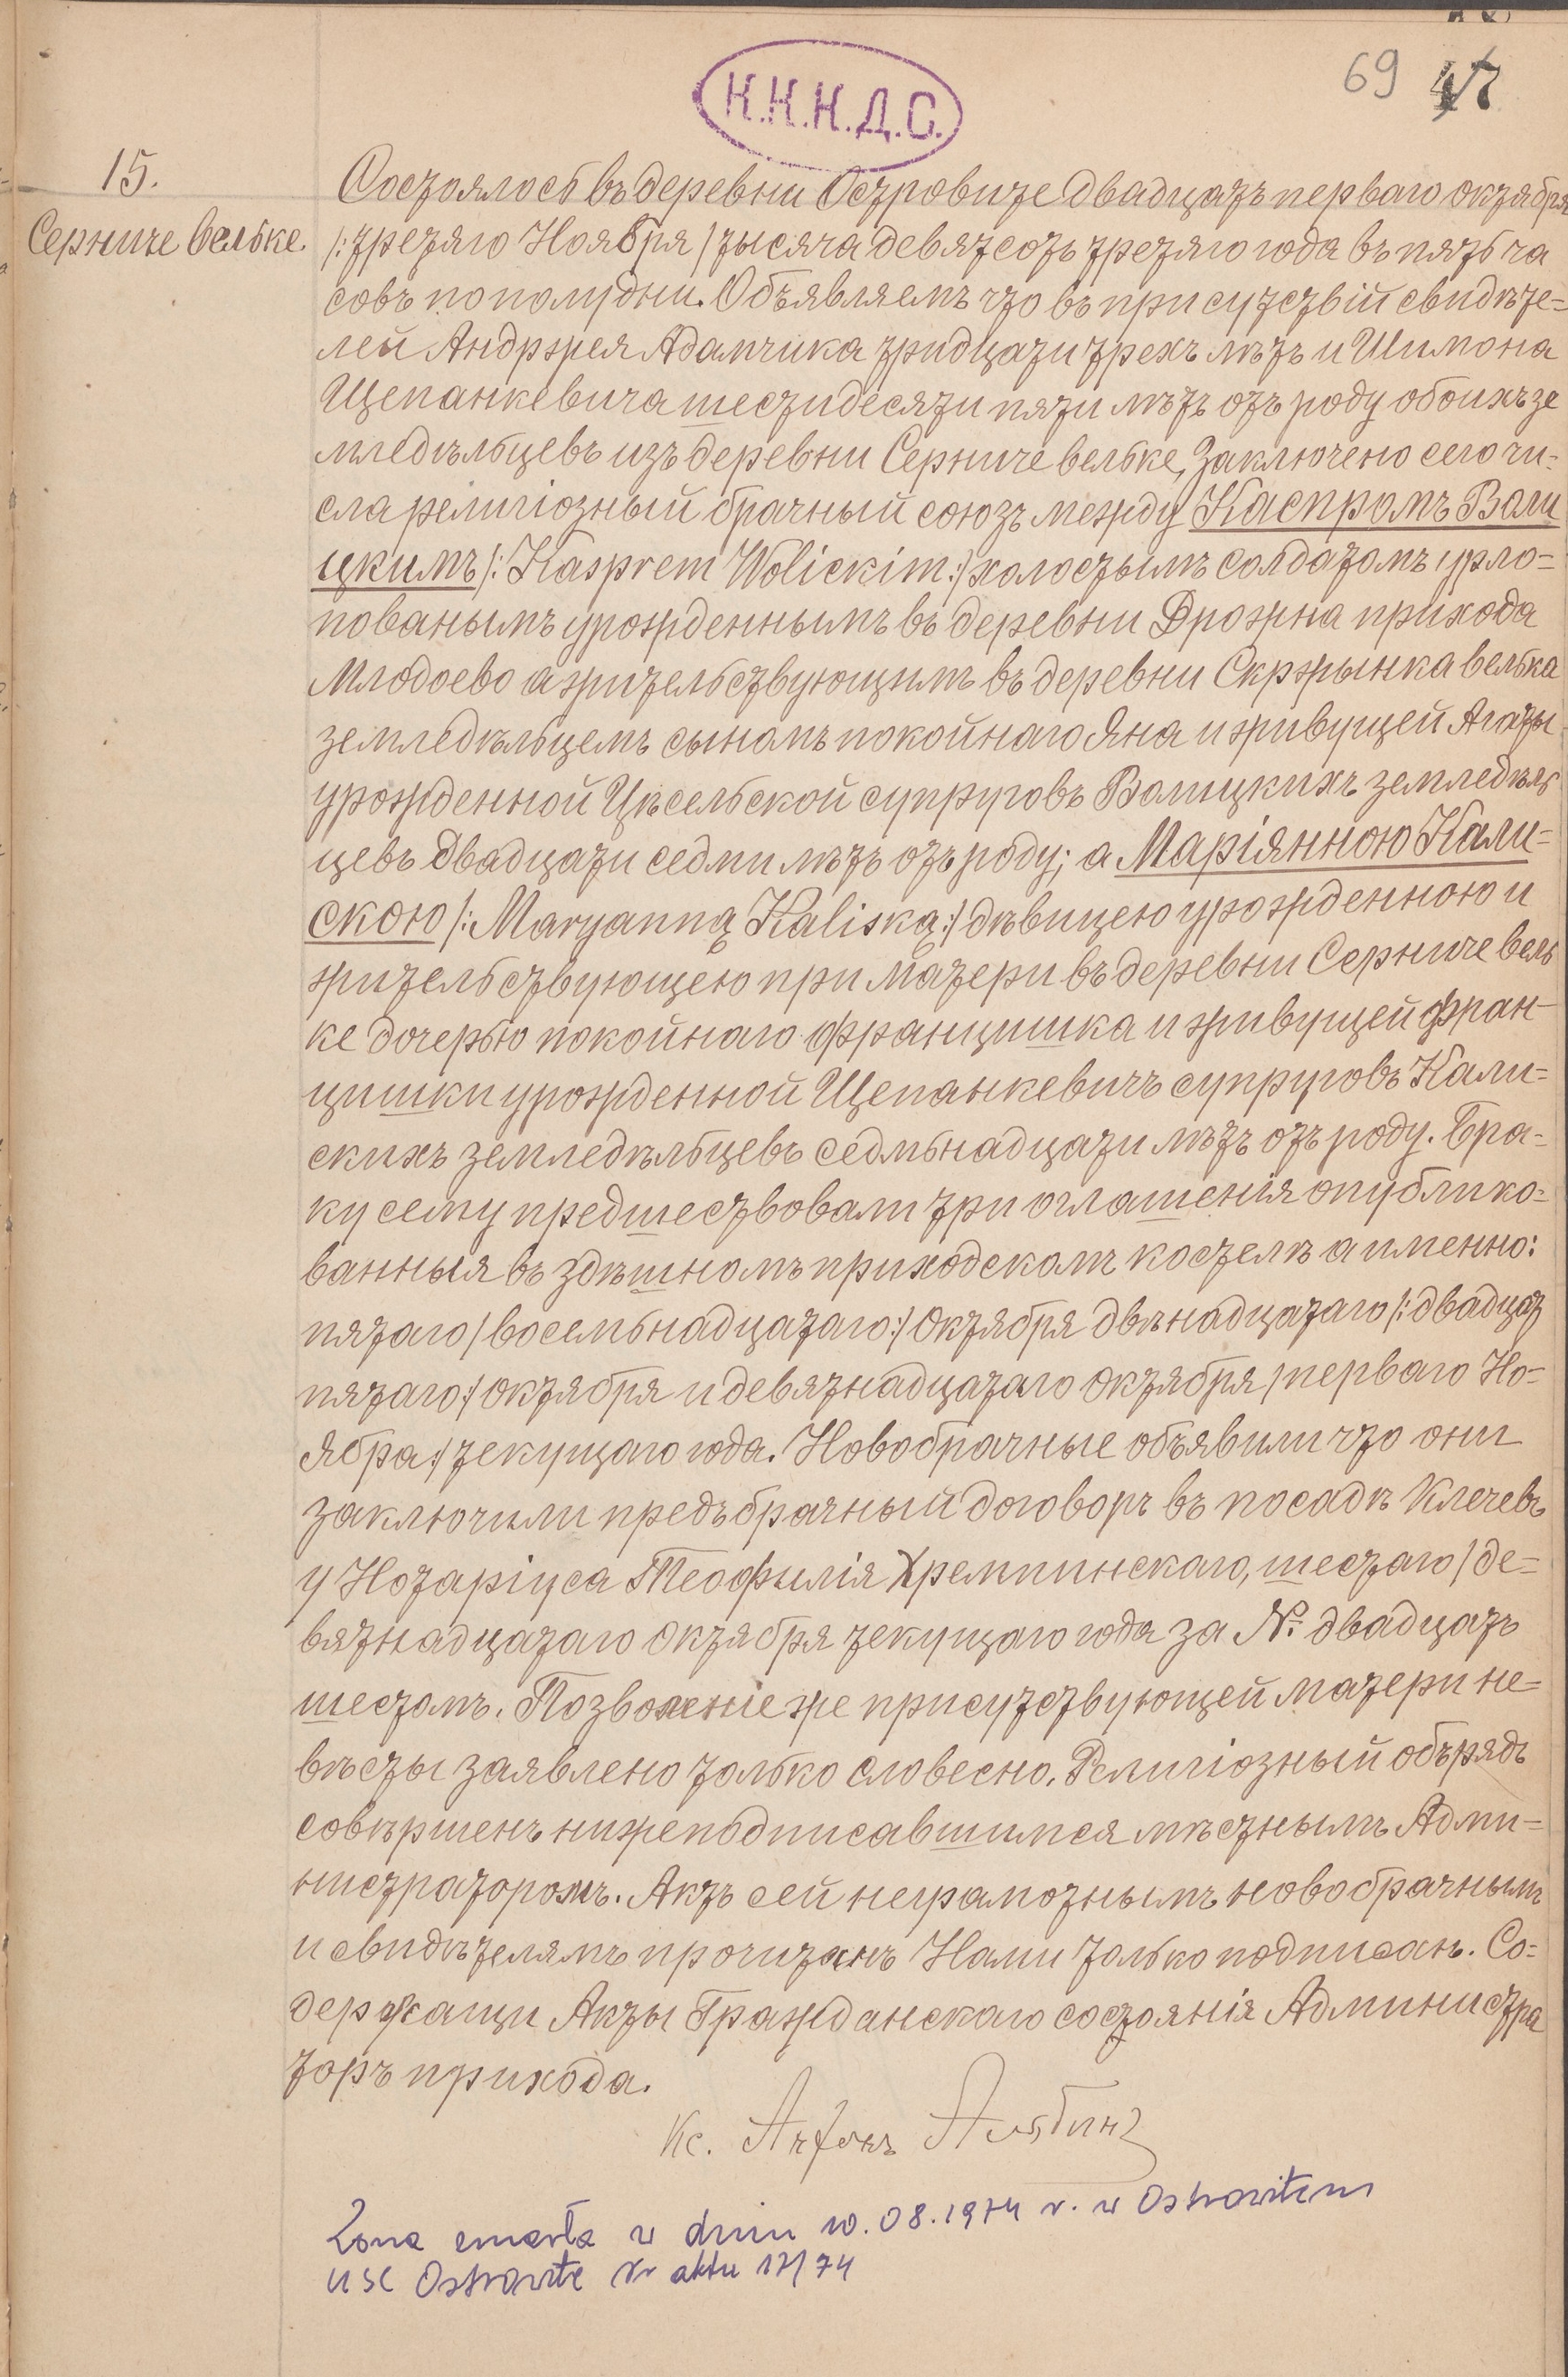 69 47
К.К.К.Д.С.
15.
Серниче вельке.
Состоялось въ деревни Островите двадцать перваго октября
/:третяго Ноября / тысяча девятсотъ третяго года въ пять ча
совъ по полудни. Объявляемъ что въ присутствій свидѣте=
лей Андржея Адамчика тридцати трехъ лѣтъ и Шимона
Щепанкевича шестидесяти пяти лѣтъ отъ роду обоихъ зе
мледѣльцевъ изъ деревни Серниче вельке, Заключено сего чи=
сла религіозный брачный союзъ между Каспромъ Воли
цкимъ /: Kasprem Wolickim :/ холостымъ солдатомъ урло=
пованымъ урожденнымъ въ деревни Дрожна прихода
Млодоево а жительствующимъ въ деревни Скржынка велька
земледѣльцемъ сыномъ покойнаго Яна и живущей Агаты
урожденной Цѣсельской супруговъ Волицкихъ земледѣль
цевъ двадцати седми лѣтъ отъ роду; а Маріянною Кали=
скою /: Maryanną Kaliską :/ дѣвицею урожденною и
жительствующею при матери въ деревни Серниче вель
ке дочерью покойнаго Францишка и живущей Фран=
цишки урожденной Щепанкевичъ супруговъ Кали=
скихъ земледѣльцевъ седмьнадцати лѣтъ отъ роду. Бра=
ку сему предшествовали три оглашенія опублико=
ванныя въ здѣшномъ приходскомъ костелѣ а именно:
пятаго / восемьнадцатаго :/ Октября двѣнадцатаго /: двадцат
пятаго :/ октября и девятнадцатаго Октября / перваго Но=
ябра :/ текущаго года. Новобрачные объявили что они
заключили предъбрачный договоръ въ посадѣ Клечевъ
у Нотаріуса Теофилія Хремпинскаго, шестаго / де=
вятнадцатаго Октября текущаго года за №: двадцать
шестомъ. Позволеніе же присутствующей матери не=
вѣсты заявлено только словесно. Религіозный обърядъ
совѣршенъ нижеподписавшимся мѣстнымъ Адми=
нистраторомъ. Актъ сей неграмотнымъ новобрачнымъ
и свидѣтелямъ прочитанъ Нами только подписанъ. Со=
держащи Акты Гражданскаго состоянія Администра
торъ прихода.
Кс. Антонъ
Żona zmarła w dniu 10.08.1974 r. w Ostrowitem
USC Ostrowite Nr aktu 17/74